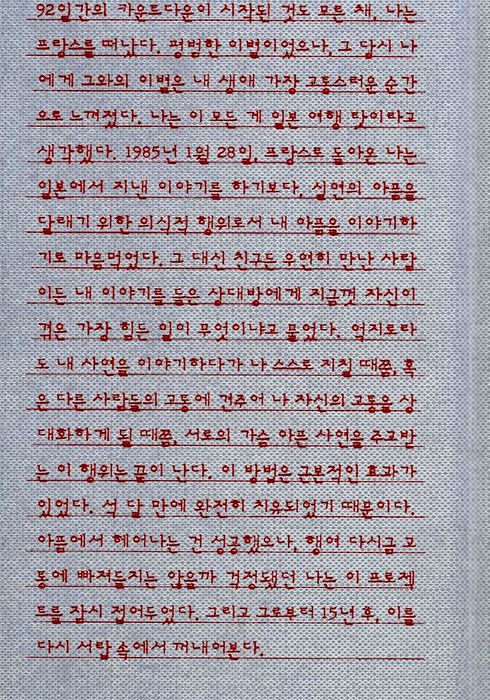 92일간의 카운트다운이 시작된 것도 모른 채, 나는
프랑스를 떠났다. 평범한 이별이었으나, 그 당시 나
에게 그와의 이별은 내 생애 가장 고통스러운 순간
으로 느껴졌다. 나는 이 모든 게 일본 여행 탓이라고
생각했다. 1985년 1월 28일, 프랑스로 돌아온 나는
일본에서 지낸 이야기를 하기보다, 실연의 아픔을
달래기 위한 의식적 행위로서 내 아픔을 이야기하
기로 마음먹었다. 그 대신 친구든 우연히 만난 사람
이든 내 이야기를 들은 상대방에게 지금껏 자신이
겪은 가장 힘든 일이 무엇이냐고 물었다. 억지로라
도 내 사연을 이야기하다가 나 스스로 지칠 때쯤, 혹
은 다른 사람들의 고통에 견주어 나 자신의 고통을 상
대화하게 될 때쯤, 서로의 가슴 아픈 사연을 주고받
는 이 행위는 끝이 난다. 이 방법은 근본적인 효과가
있었다. 석 달 만에 완전히 치유되었기 때문이다.
아픔에서 헤어나는 건 성공했으나, 행여 다시금 고
통에 빠져들지는 않을까 걱정됐던 나는 이 프로젝
트를 잠시 접어두었다. 그리고 그로부터 15년 후, 이를
다시 서랍 속에서 꺼내어본다.